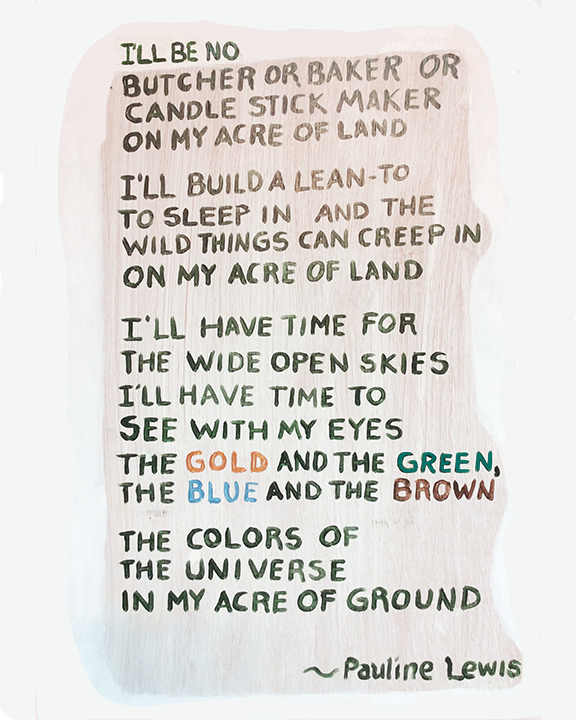 I'LL BE NO
BUTCHER OR BAKER OR
CANDLE STICK MAKER
ON MY ACRE OF LAND
I'LL BUILD A LEAN-TO
TO SLEEP IN AND THE
WILD THINGS CAN CREEP IN
ON MY ACRE OF LAND
I'LL HAVE TIME FOR
THE WIDE OPEN SKIES
I'LL HAVE TIME TO
SEE WITH MY EYES
THE GOLD AND THE GREEN,
THE BLUE AND THE BROWN
THE COLORS OF
THE UNIVERSE
IN MY ACRE OF GROUND
~Pauline Lewis